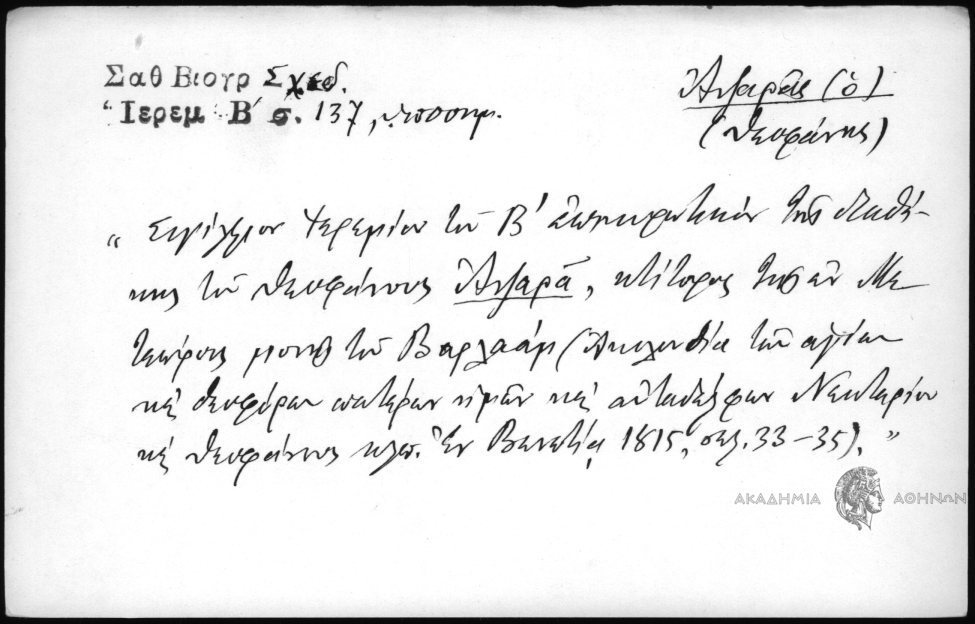 Σαθ Βιογρ Σχεδ.
Ἱερεμ Β' σ. 137, ὑποσημ.
Ἀψαρᾶς (ὁ)
(Θεοφάνης)
„ Σιγίλλιον Ἱερεμίου τοῦ Β' ἐπικυρωτικὸν τῆς διαθή-
κης τοῦ Θεοφάνους Ἀψαρᾶ, κτίτορος τῆς ἐν Με
τεώροις μονῆς τοῦ Βαρλαὰμ (Ἀκολουθία τῶν ἁγίων
καὶ θεοφόρων πατέρων ἡμῶν καὶ αὐταδέλφων Νεκταρίου
καὶ Θεοφάνους κλπ. Ἐν Βενετίᾳ 1815, σελ. 33–35). ”
ΑΚΑΔΗΜΙΑ ΑΘΗΝΩΝ